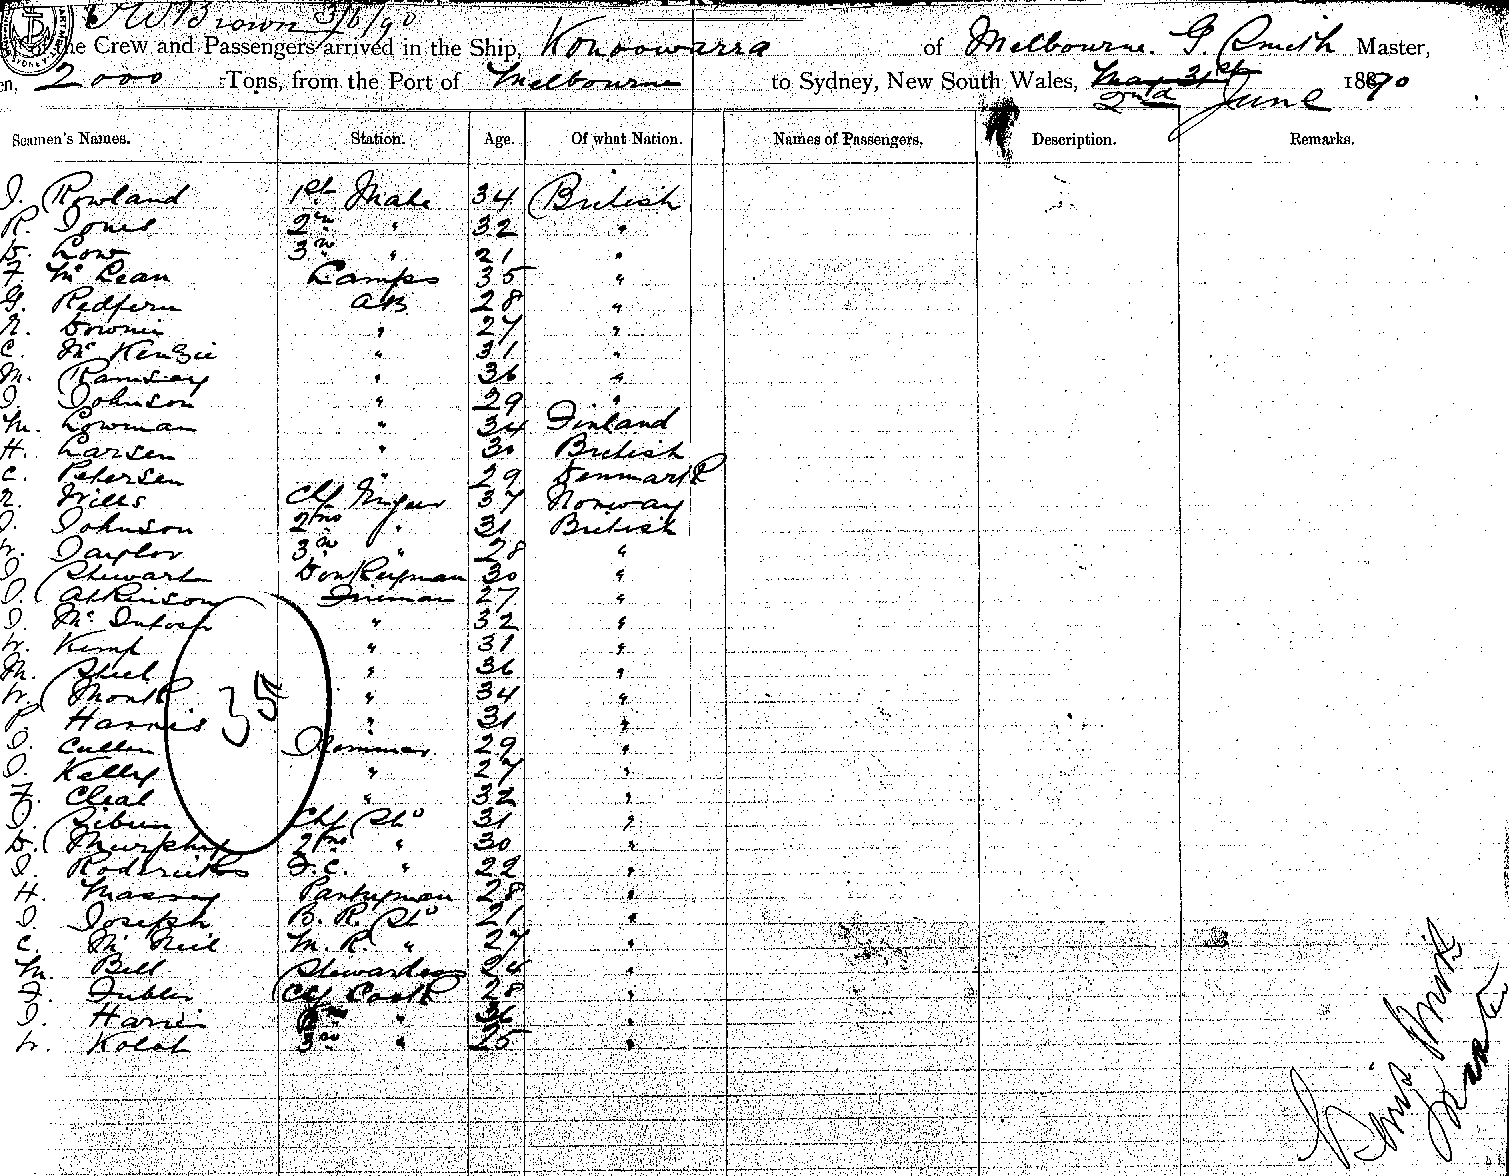 W Brown 3/6/90
of the Crew and Passengers arrived in the Ship, Konoowarra of Melbourne. G. Smith Master,
2000 Tons, from the Port of Melbourne to Sydney, New South Wales, May 31st 2nd June 1890
Seamen's Names. Station. Age. Of what Nation. Names of Passengers. Description. Remarks.
J. Rowland 1st Mate 34 British
R. Jones 2nd " 32 "
D. Low 3rd " 21 "
F. McLean Lamps 35 "
G. Redfern AB 28 "
R. Downie " 27 "
C. McKenzie " 31 "
M. Ramsay " 36 "
J. Johnson " 29 "
M. Lowman " 34 Finland
H. Larsen " 30 British
C. Petersen " 29 Denmark
R. Wills Chf Engeer 37 Norway
J. Johnson 2nd " 31 British
W. Taylor 3rd " 28 "
J. Stewart Donkeyman 30 "
J. Atkinson Fireman 27 "
J. McIntosh " 32 "
W. Kemp " 31 "
M. Shiel " 36 "
W. Monk " 34 "
P. Harris " 31 "
35
J. Cullen Trimmer 29 "
J. Kelly " 27 "
F. Cleal " 32 "
J. Chf Std 31 "
D. Murphy 2nd " 30 "
J. Rodericks F.C. " 22 "
H. Massey Pantryman 28 "
J. Joseph B. R. Std 21 "
C. McNeil M. R. " 27 "
M. Bell Stewardess 24 "
J. Chf Cook 28 "
J. Harris 2nd " "
W. 3rd " 25 "